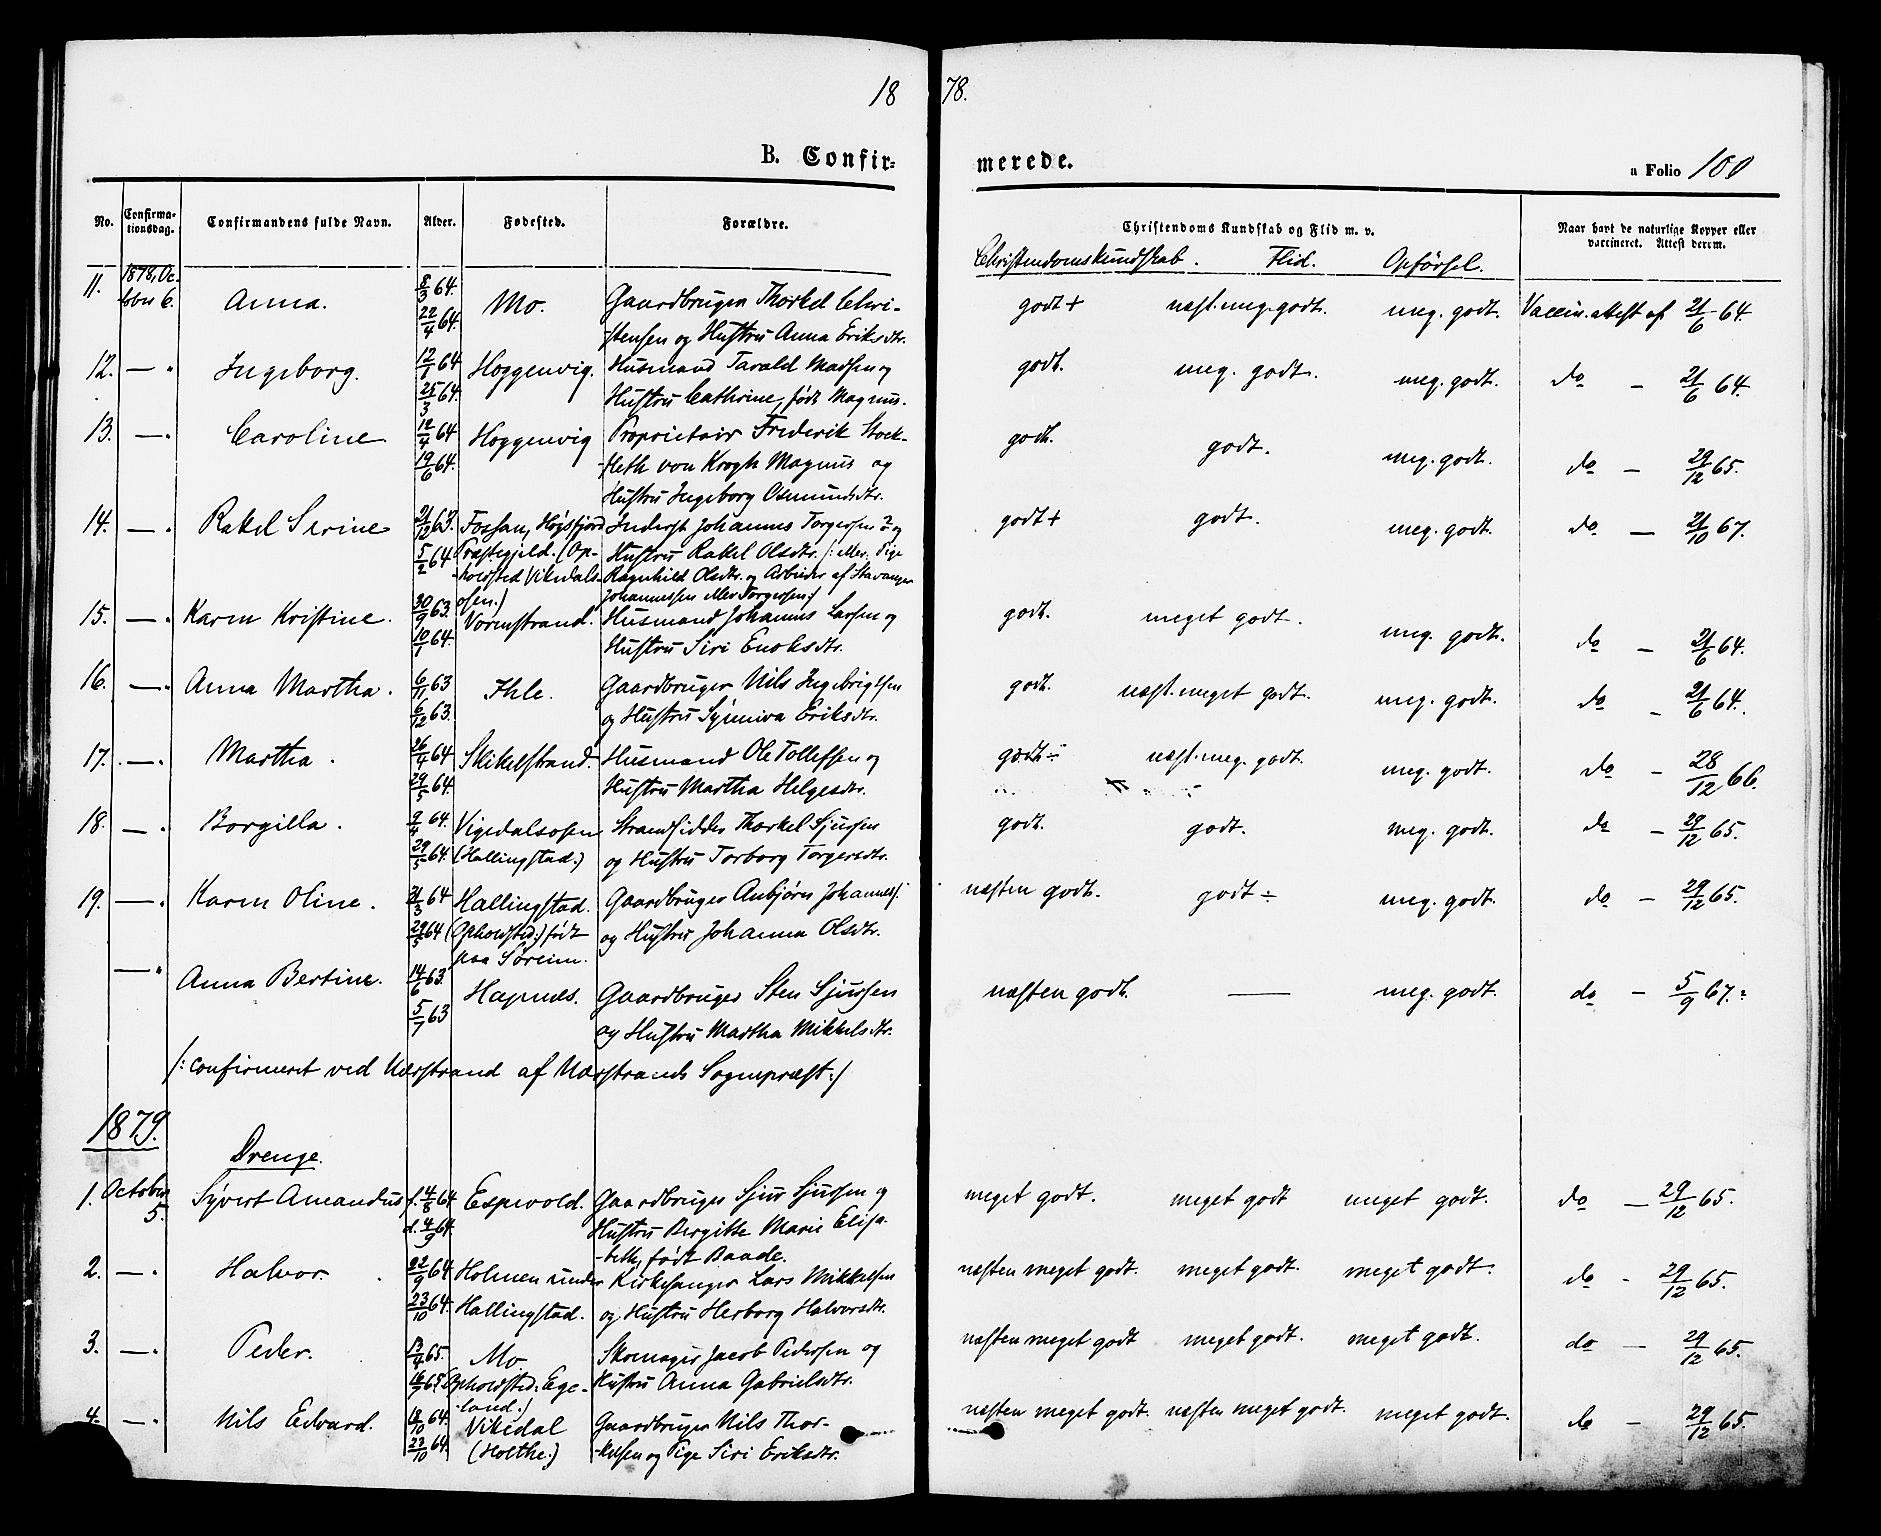 1878.
B. Confirmerede.
a Folio 100
No. Confirmationsdag. Confirmandens fulde Navn. Alder. Fødested. Forældre. Christendoms Kundskab og Flid m. v. Naar havt de naturlige Kopper eller vaccineret. Attest derom.
Christendomskundskab. Flid. Opførsel.
11. 1878, October 6. Anna. 8/3 64. 22/4 64. Mo. Gaardbruger Thorkel Chri-
stensen og Hustru Anna Eriksdtr. godt + næst. meg. godt. meg. godt. Vaccin. attest af 21/6 64.
12. — " Ingeborg. 12/1 64 25/3 64. Hoggenvig. Husmand Tarald Madsen og
Hustru Cathrine, født Magnus. godt. meg. godt. meg. godt. do — 21/6 64.
13. — " Caroline 12/4 64 19/6 64. Hoggenvig Proprietair Frederik Stock-
fleth von Krogh Magnus og
Hustru Ingeborg Osmundsdtr. godt. godt. meg. godt. do — 29/12 65.
14. — " Rakel Serine 21/12 63. 5/2 64 Fossan, Høgsfjord
Præstegjeld. (Op-
holdsted Vikedals-
osen:) Inderst Johannes Torgersen ? og
Hustru Rakel Olsdtr. /: eller Pige
Ragnhild Olsdtr. og Arbeider af Stavanger
Johannessen eller Torgersen:/ godt + godt. meg. godt. do — 21/10 67.
15. — " Karen Kristine. 30/9 63. 10/1 64. Vormstrand. Husmand Johannes Larsen og
Hustru Siri Enoksdtr. godt. meget godt. meg. godt. do — 21/6 64.
16. — " Anna Martha. 6/11 63 6/12 63. Ihle. Gaardbruger Nils Ingebrigtsen
og Hustru Synniva Eriksdtr. godt. næst. meget godt. meg. godt. do — 21/6 64.
17. — " Martha. 26/4 64 29/5 64. Skikelstrand. Husmand Ole Tollefsen og
Hustru Martha Helgesdtr. godt ÷ næst. meg. godt. meg. godt. do — 28/12 66.
18. — " Borgilla. 9/4 64. 29/5 64. Vigedalsosen
(Hallingstad:) Strandsidder Thorkel Sjursen
og Hustru Torborg Torgersdtr. godt. godt. meg. godt. do — 29/12 65.
19. — " Karen Oline. 21/3 64 29/5 64 Hallingstad.
(Opholdsted:) født
paa Søreim. Gaardbruger Anbjørn Johanness.
og Hustru Johanna Olsdtr. næsten godt. godt ÷ meg. godt. do — 29/12 65.
— " Anna Bertine. 14/6 63. 5/7 63 Hapnes. Gaardbruger Sten Sjursen
og Hustru Martha Mikkelsdtr. næsten godt. — meg. godt. do — 5/9 67.
/: confirmeret ved Nærstrand af Nærstrands Sognepræst:/
1879.
Drenge.
1. October 5. Syvert Amandus f. 4/8 64 d. 4/9 64. Espevold. Gaardbruger Sjur Sjursen og
Hustru Bergitte Marie Elisa-
beth, født Baade. meget godt. meget godt meget godt. do — 29/12 65.
2. — " Halvor. 22/9 64 23/10 64. Holmen under
Hallingstad. Kirkesanger Lars Mikkelsen
og Hustru Herborg Halvorsdtr. næsten meget godt. meget godt. meget godt. do - 29/12 65.
3. — " Peder. 13/4 65. 16/7 65 Mo
(Opholdsted: Ege-
land.:/ Skomager Jacob Pedersen og
Hustru Anna Gabrielsdtr. næsten meget godt meget godt. meget godt. do — 29/12 65.
4. — " Nils Edvard. 18/10 64. 23/10 64. Vikedal
(Holthe:) Gaardbruger Nils Thor-
kelsen og Pige Siri Eriksdtr. næsten meget godt. næsten meget godt. meget godt. do — 29/12 65.